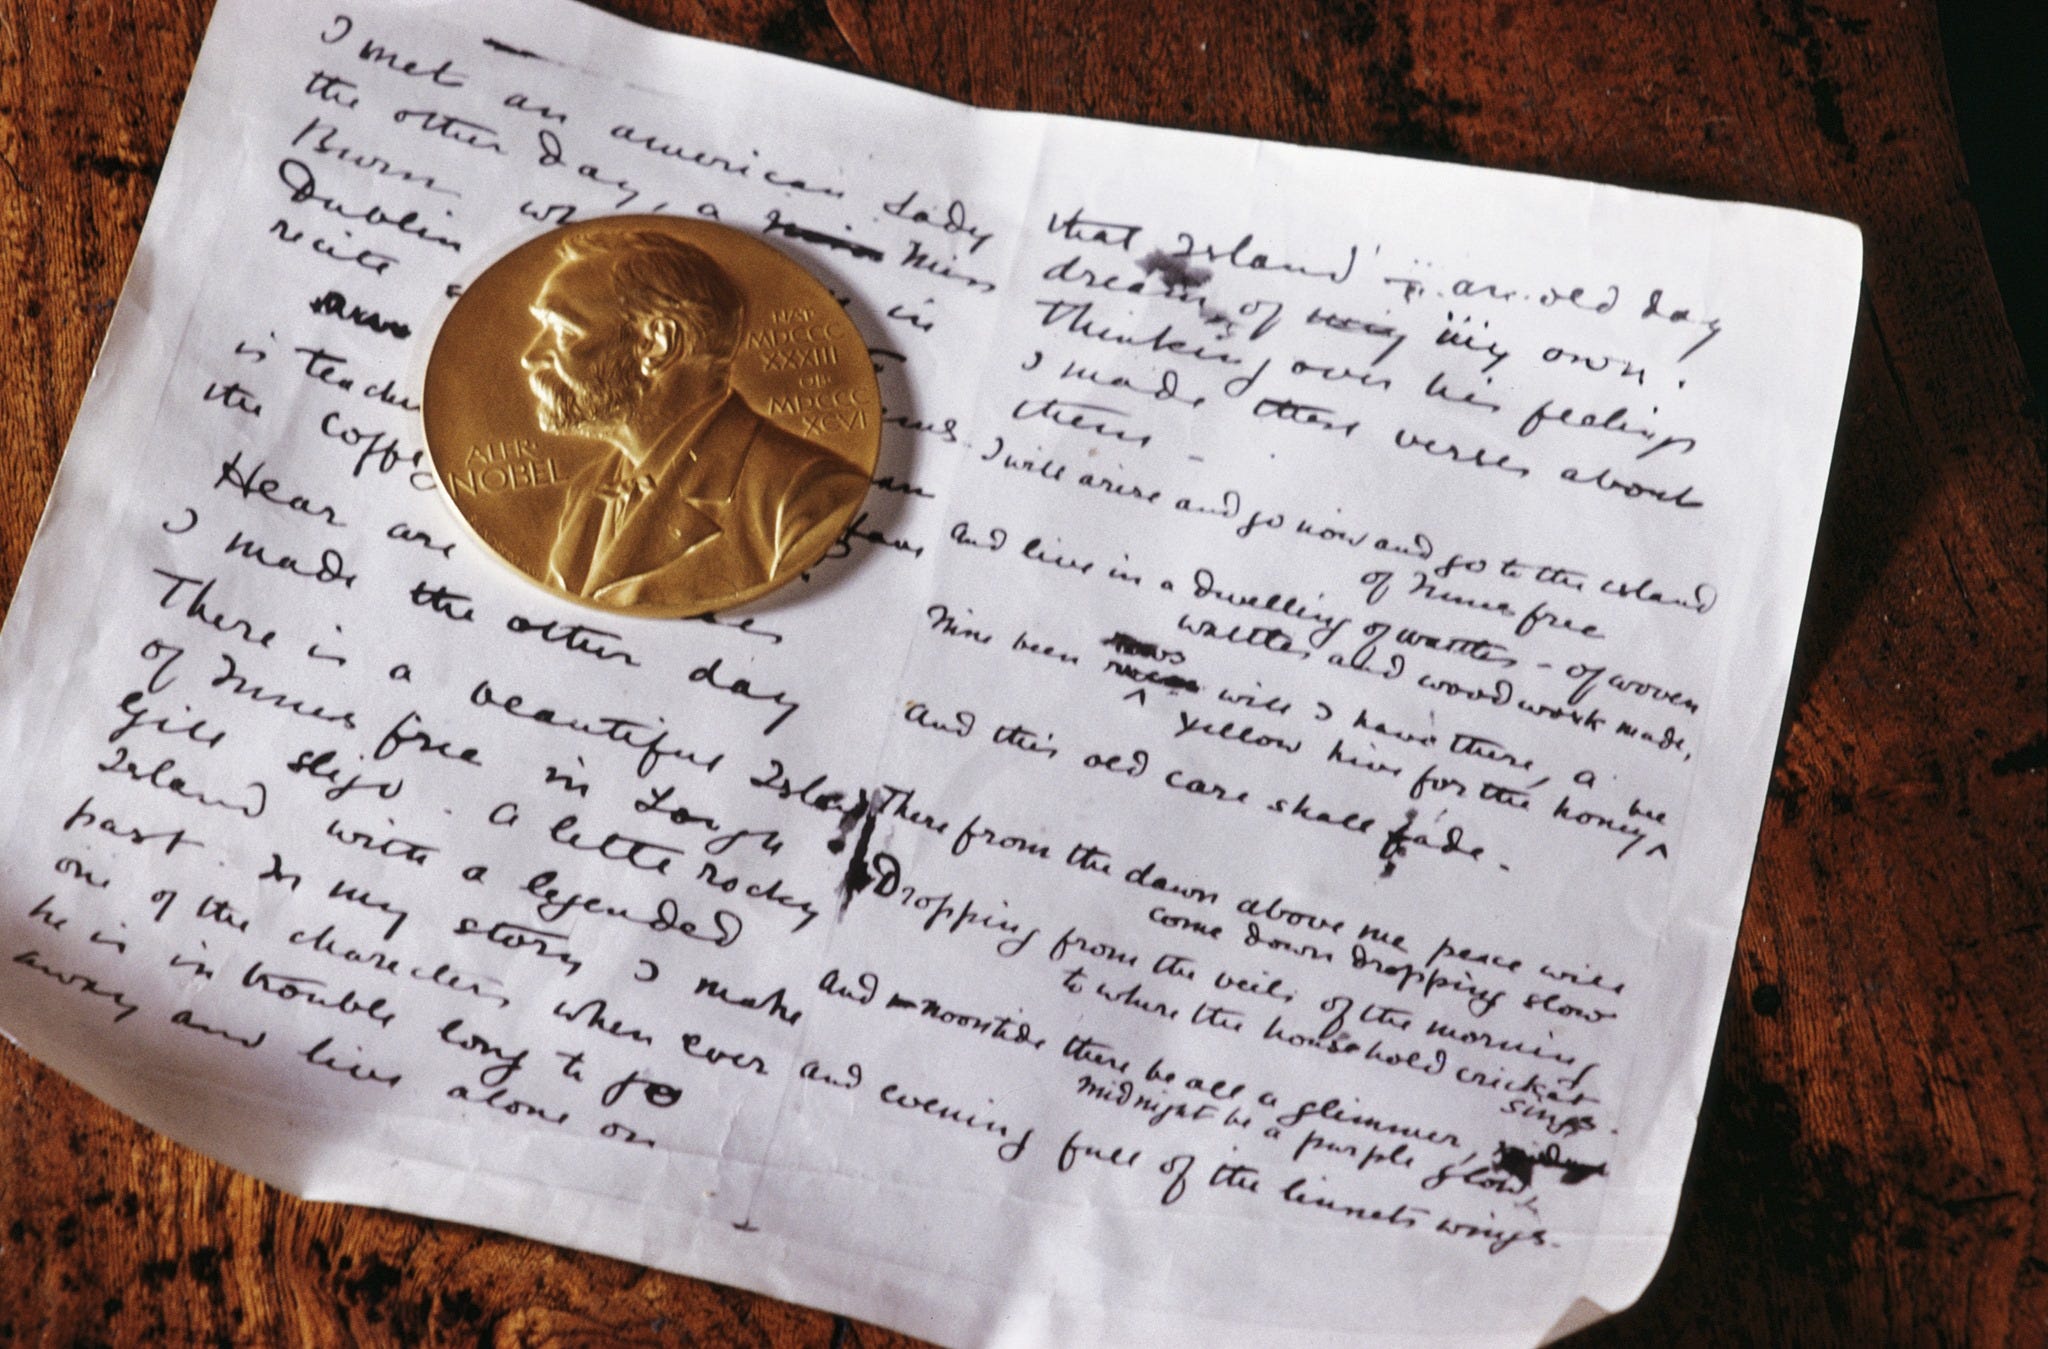 I met an american Lady
the other day, a Miss
Burn
Dublin in
recite
is
the
Hear are
I made the other day
There is a beautiful Island
of Innis free in Lough
Gill Sligo. A little rocky
Island with a legended
past. In my story I make
one of the characters when ever
he is in trouble long to go
away and live alone on
NAT
MDCCC
XXXIII
OB
MDCCC
XCVI
ALFR
NOBEL
that Island – an old day
dream of my my own.
Thinking over his feelings
I made these verses about
them –
I will arise and go now and go to the island
of Innis free
And live in a dwelling of wattles – of woven
wattles and wood work made,
Nine been will I have there, a
yellow hive for the honey bee
And this old care shall fade.
There from the dawn above me peace will
come down dropping slow
Dropping from the veils of the morning
to where the household cricket
sings.
And noontide there be all a glimmer,
midnight be a purple glow,
And evening full of the linnets wings.